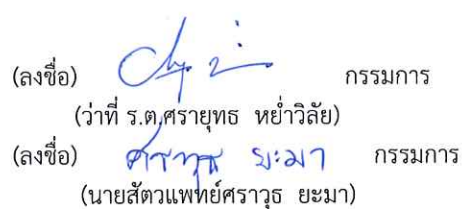 (ลงชื่อ) กรรมการ
(ว่าที่ ร.ต.ศรายุทธ หย่ำวิลัย)
(ลงชื่อ) ศราวุธ ยะมา กรรมการ
(นายสัตวแพทย์ศราวุธ ยะมา)